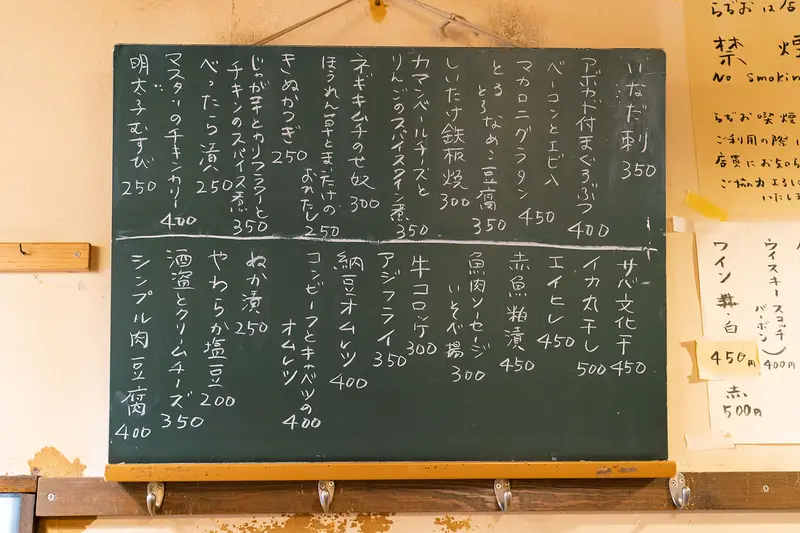 いなだ刺
350
アボカド付まぐろぶつ
400
ベーコンとエビ入
マカロニグラタン
450
とろとろなめこ豆腐
350
しいたけ鉄板焼
300
カマンベールチーズと
りんごのスパイスワイン煮
350
ネギキムチのせ奴
300
ほうれん草とまいたけの
おひたし
250
きぬかつぎ
250
じゃが芋とカリフラワーと
チキンのスパイス煮
350
べったら漬
250
マスタリのチキンカリー
400
明太子むすび
250
サバ文化干
450
イカ丸干し
500
エイヒレ
450
赤魚粕漬
450
魚肉ソーセージ
いそべ揚
300
牛コロッケ
300
アジフライ
350
納豆オムレツ
400
コンビーフとキャベツの
オムレツ
400
ぬか漬
250
やわらか塩豆
200
酒盗とクリームチーズ
350
シンプル肉豆腐
400
らぢおは店
禁煙
No smokin
らぢお喫煙
ご利用の際
店員にお知ら
ご協力よろ
いたしま
ウイスキー(スコッチ
バーボン)
400円
ワイン 赤・白
450円
赤
500円